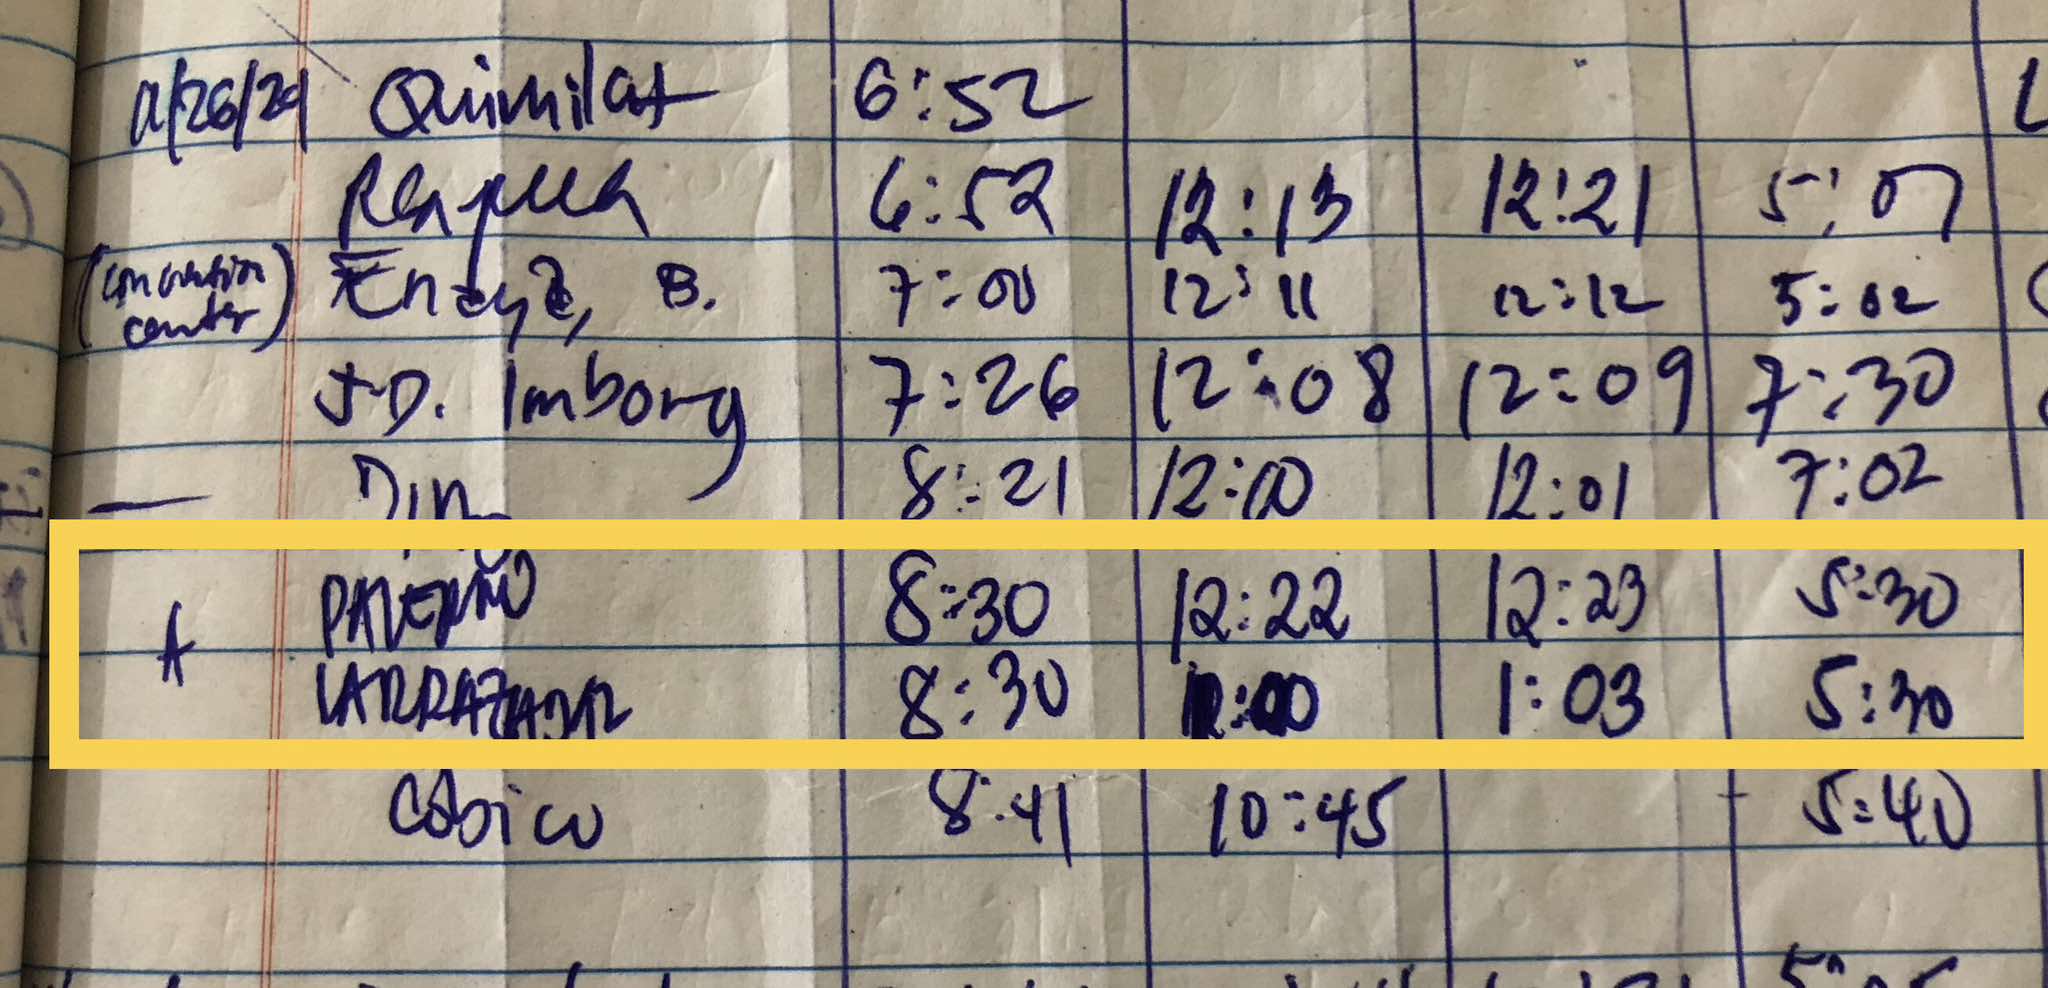 Quimilat 6:52
6:52 12:13 12:21 5:07
(convention center) Enzyz, B. 7:00 12:11 12:12 5:02
J.D. Imborg 7:26 12:08 12:09 7:30
— Dino 8:21 12:00 12:01 7:02
A PALERMO 8:30 12:22 12:23 5:30
LARRAZABAL 8:30 1:03 5:30
Cobico 8:41 10:45 5:40